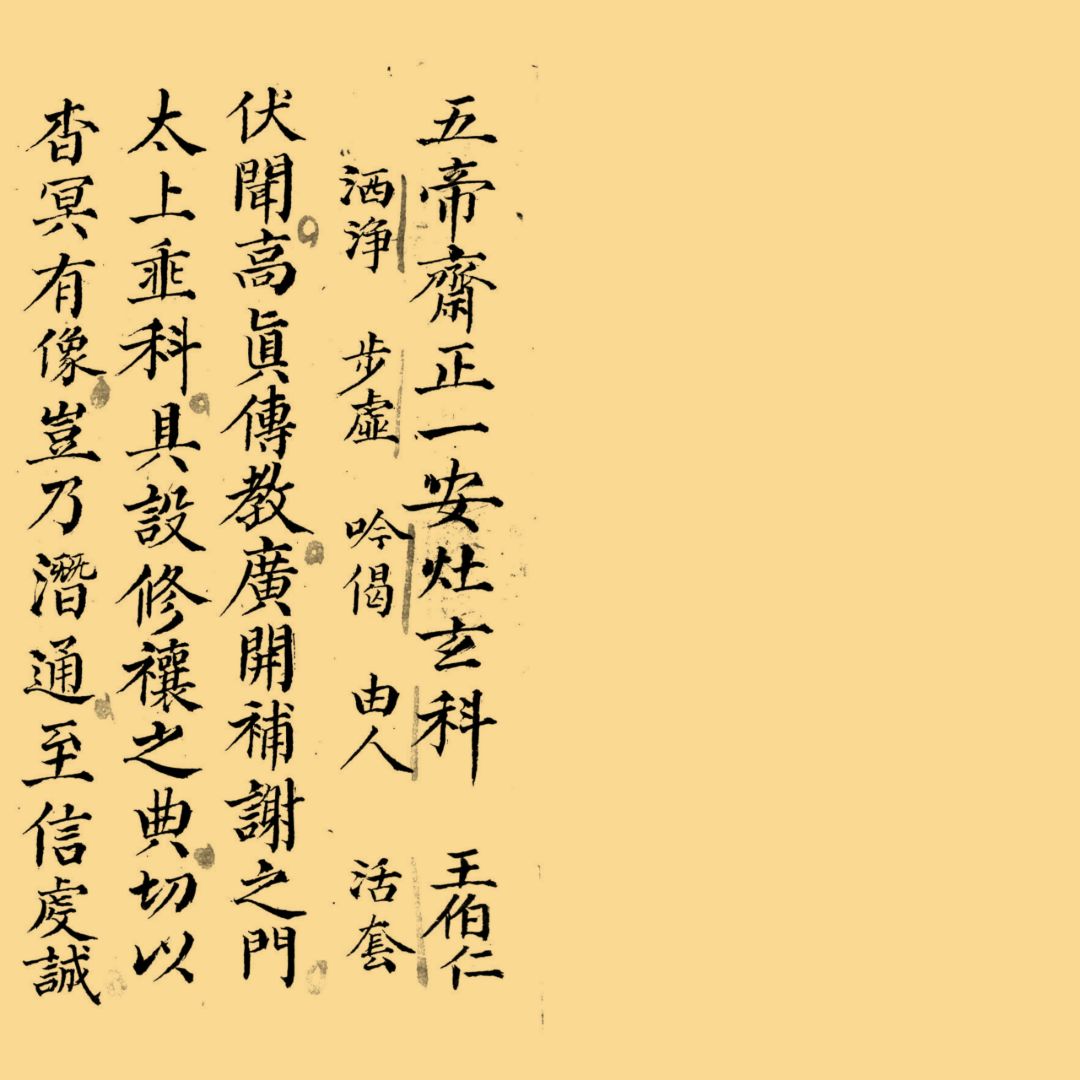 五帝齋正一安灶玄科 王伯仁
洒淨 步虛 吟偈 由人 活套
伏聞高眞傳教廣開補謝之門
太上垂科具設修禳之典切以
杳冥有像豈乃潛通至信虔誠